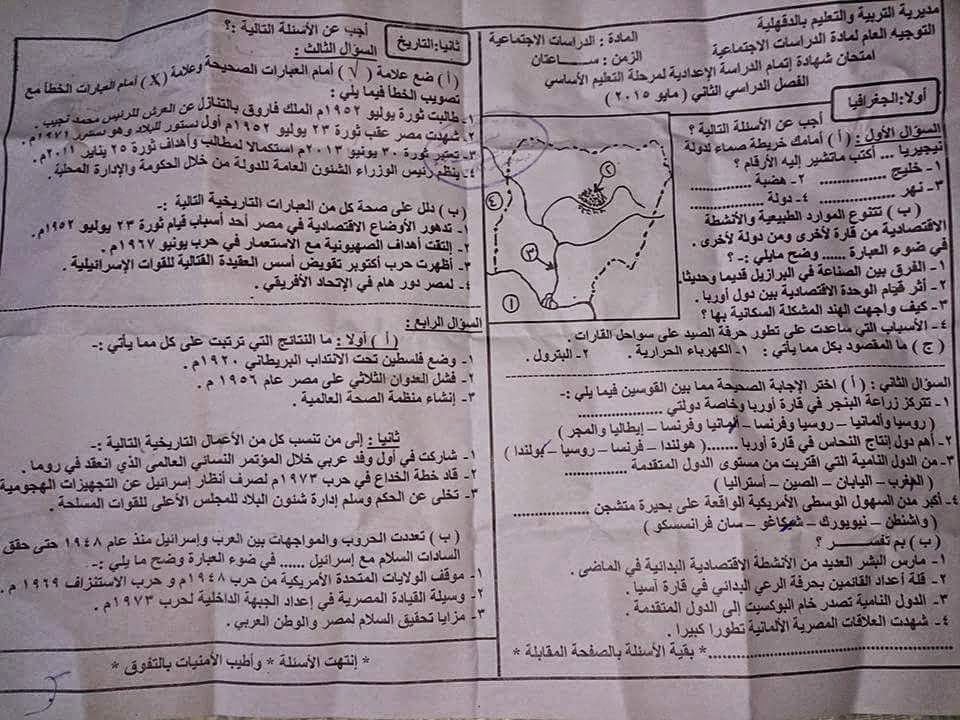 مديرية التربية والتعليم بالدقهلية
التوجيه العام لمادة الدراسات الاجتماعية
المادة : الدراسات الاجتماعية
الزمن : ساعتان
امتحان شهادة إتمام الدراسة الإعدادية لمرحلة التعليم الأساسي
الفصل الدراسي الثاني ( مايو ٢٠١٥ )
أولا: الجغرافيا
أجب عن الأسئلة التالية ؟
السؤال الأول : ( أ ) أمامك خريطة صماء لدولة
نيجيريا ... أكتب ماتشير إليه الأرقام ؟
١- خليج .............. ٢- هضبة ..............
٣- نهر .............. ٤- دولة ..............
( ب ) تتنوع الموارد الطبيعية والأنشطة
الاقتصادية من قارة لأخرى ومن دولة لأخرى .
في ضوء العبارة ...... وضح مايلي :- ؟
١- الفرق بين الصناعة في البرازيل قديما وحديثا.
٢- أثر قيام الوحدة الاقتصادية بين دول أوربا .
٣- كيف واجهت الهند المشكلة السكانية بها ؟
٤- الأسباب التي ساعدت على تطور حرفة الصيد على سواحل القارات .
( ج ) ما المقصود بكل مما يأتي : ١- الكهرباء الحرارية . ٢- البترول .
١
٢
٣
٤
السؤال الثاني : ( أ ) اختر الإجابة الصحيحة مما بين القوسين فيما يلي :-
١- تتركز زراعة البنجر في قارة أوربا وخاصة دولتي ..............
( روسيا وألمانيا – روسيا وفرنسا – ألمانيا وفرنسا – إيطاليا والمجر )
٢- أهم دول إنتاج النحاس في قارة أوربا ......( هولندا – فرنسا – روسيا – بولندا )
٣- من الدول النامية التي اقتربت من مستوى الدول المتقدمة ..............
( المغرب – اليابان – الصين – أستراليا )
٤- أكبر مدن السهول الوسطى الأمريكية الواقعة على بحيرة متشجن ..............
( واشنطن – نيويورك – شيكاغو – سان فرانسسكو )
( ب ) بم تفسر ؟
١- مارس البشر العديد من الأنشطة الاقتصادية البدائية في الماضى .
٢- قلة أعداد القائمين بحرفة الرعي البدائي في قارة آسيا .
٣- الدول النامية تصدر خام البوكسيت إلى الدول المتقدمة .
٤- شهدت العلاقات المصرية الألمانية تطورا كبيرا .
* بقية الأسئلة بالصفحة المقابلة *
ثانيا: التاريخ
أجب عن الأسئلة التالية :؟
السؤال الثالث :
( أ ) ضع علامة ( √ ) أمام العبارات الصحيحة وعلامة ( X ) أمام العبارات الخطأ مع
تصويب الخطأ فيما يلي :
١- طالبت ثورة يوليو ١٩٥٢م الملك فاروق بالتنازل عن العرش للرئيس محمد نجيب
٢- شهدت مصر عقب ثورة ٢٣ يوليو ١٩٥٢م أول دستور للبلاد وهو دستور ١٩٧١م.
٣- تعتبر ثورة ٣٠ يونيو ٢٠١٣م استكمالا لمطالب وأهداف ثورة ٢٥ يناير ٢٠١١م.
٤- ينظم رئيس الوزراء الشئون العامة للدولة من خلال الحكومة والإدارة المحلية .
( ب ) دلل على صحة كل من العبارات التاريخية التالية :-
١- تدهور الأوضاع الاقتصادية في مصر أحد أسباب قيام ثورة ٢٣ يوليو ١٩٥٢م .
٢- إلتقت أهداف الصهيونية مع الاستعمار في حرب يونيو ١٩٦٧م .
٣- أظهرت حرب أكتوبر تقويض أسس العقيدة القتالية للقوات الإسرائيلية .
٤- لمصر دور هام في الإتحاد الأفريقي .
السؤال الرابع :
( أ ) أولا : ما النتائج التي ترتبت على كل مما يأتي :-
١- وضع فلسطين تحت الانتداب البريطاني ١٩٢٠م .
٢- فشل العدوان الثلاثي على مصر عام ١٩٥٦م .
٣- إنشاء منظمة الصحة العالمية .
ثانيا : إلى من تنسب كل من الأعمال التاريخية التالية :-
١- شاركت في أول وفد عربي خلال المؤتمر النسائي العالمى الذي انعقد في روما .
٢- قاد خطة الخداع في حرب ١٩٧٣م لصرف أنظار إسرائيل عن التجهيزات الهجومية
٣- تخلى عن الحكم وسلم إدارة شئون البلاد للمجلس الأعلى للقوات المسلحة .
( ب ) تعددت الحروب والمواجهات بين العرب وإسرائيل منذ عام ١٩٤٨ حتى حقق
السادات السلام مع إسرائيل ...... في ضوء العبارة وضح ما يلي :-
١- موقف الولايات المتحدة الأمريكية من حرب ١٩٤٨م و حرب الاستنزاف ١٩٦٩م .
٢- وسيلة القيادة المصرية في إعداد الجبهة الداخلية لحرب ١٩٧٣م .
٣- مزايا تحقيق السلام لمصر والوطن العربي .
* إنتهت الأسئلة * وأطيب الأمنيات بالتفوق *